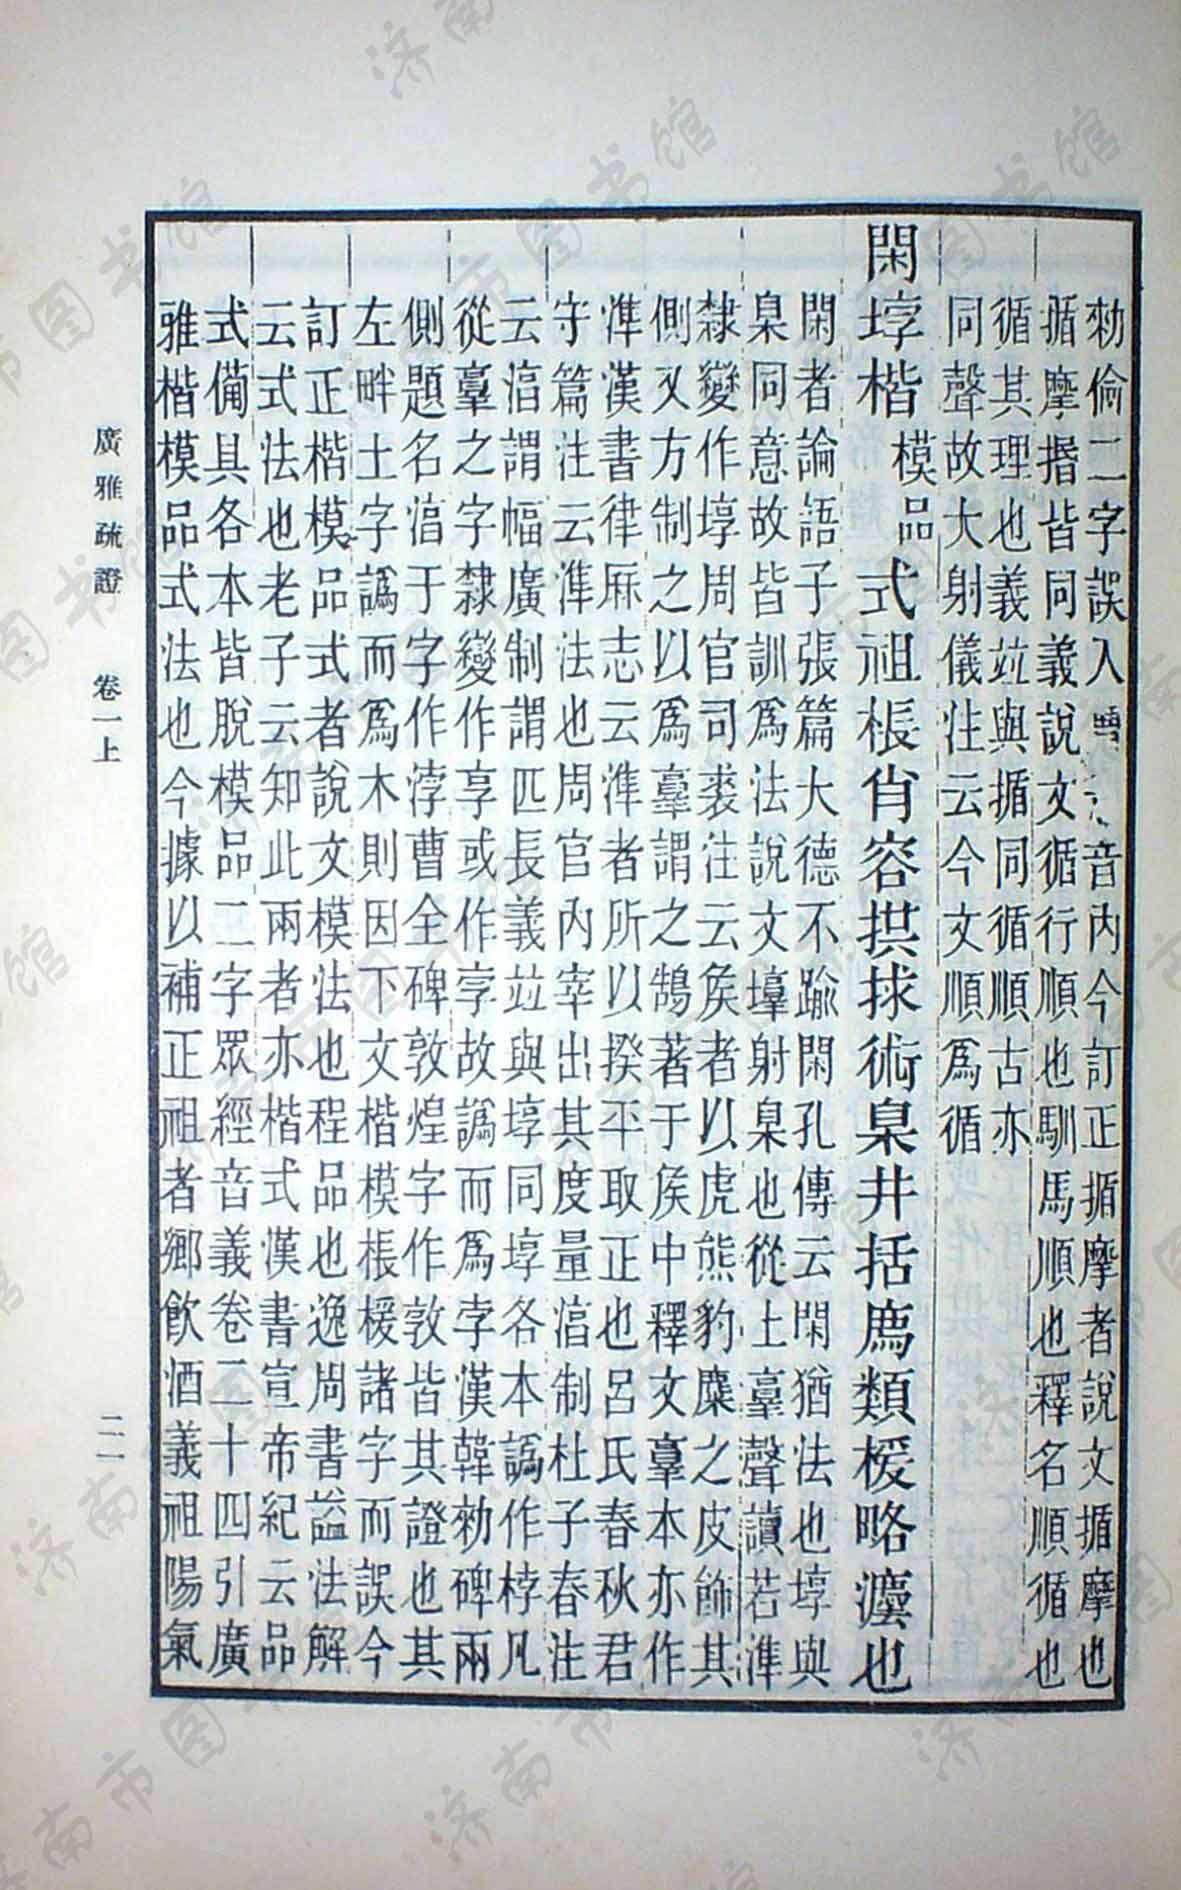 勑偷二字誤入曹音內今訂正揗摩者說文揗摩也
揗摩撍皆同義說文循行順也馴馬順也釋名順循也
循其理也義竝與揗同循順古亦
同聲故大射儀注云今文順爲循
閑埻楷模品式祖根肖容拱捄術臬井括廌類楥略灋也
閑者論語子張篇大德不踰閑孔傳云閑猶法也埻與
臬同意故皆訓爲法說文𡑣射臬也從土𦎫聲讀若準
隸變作埻周官司裘注云矦者以虎熊豹麋之皮飾其
側又方制之以爲𦎫謂之鵠著于矦中釋文𦎫本亦作
準漢書律厤志云準者所以揆平取正也呂氏春秋君
守篇注云準法也周官內宰出其度量淳制杜子春注
云淳謂幅廣制謂匹長義竝與埻同埻各本譌作桲凡
從𦎫之字隸變作享或作孛故譌而爲孛漢韓勑碑兩
側題名淳于字作浡曹全碑敦煌字作敦皆其證也其
左畔土字譌而爲木則因下文楷模根楥諸字而誤今
訂正楷模品式者說文模法也程品也逸周書謚法解
云式法也老子云知此兩者亦楷式漢書宣帝紀云品
式備具各本皆脫模品二字眾經音義卷二十四引廣
雅楷模品式法也今據以補正祖者鄉飮酒義祖陽氣
廣雅疏證 卷一上
二一